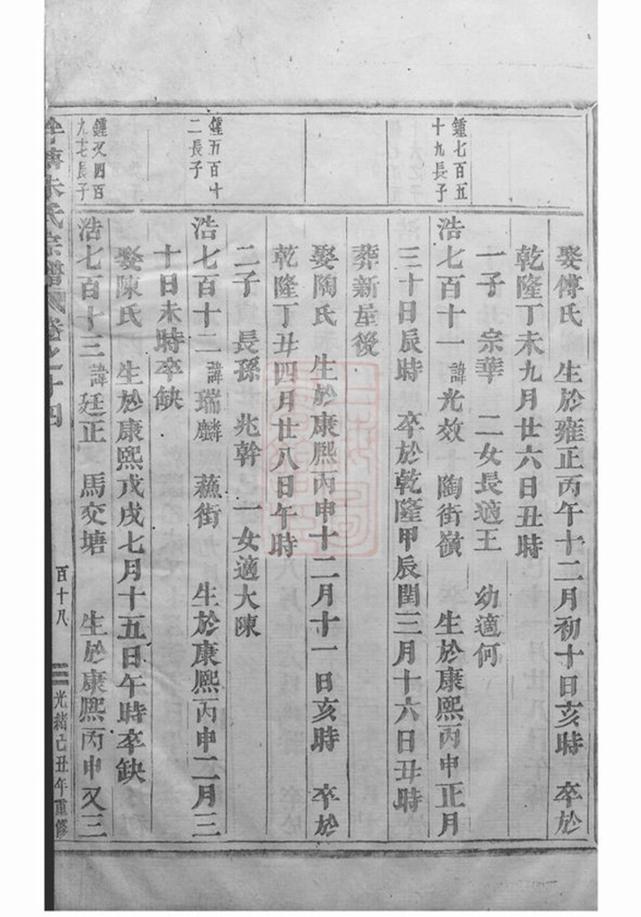 娶傅氏 生於雍正丙午十二月初十日亥時 卒於
乾隆丁未九月廿六日丑時
一子 宗華 二女長適王 幼適何
鍾七百五
十九長子
浩七百十一 諱光效 陶街嶺 生於康熙丙申正月
三十日辰時 卒於乾隆甲辰閏三月十六日丑時
葬新屋後
娶陶氏 生於康熙丙申十二月十一日亥時 卒於
乾隆丁丑四月廿八日午時
二子 長孫 兆幹 一女適大陳
鍾五百十
二長子
浩七百十二 諱瑞麟 蘸街 生於康熙丙申二月三
十日未時卒缺
娶陳氏 生於康熙戊戌七月十五日午時卒缺
鍾又四百
九七長子
浩七百十三 諱廷正 馬交塘 生於康熙丙申又三
朱氏宗譜 卷之十四
百十八
光緒己丑年重修